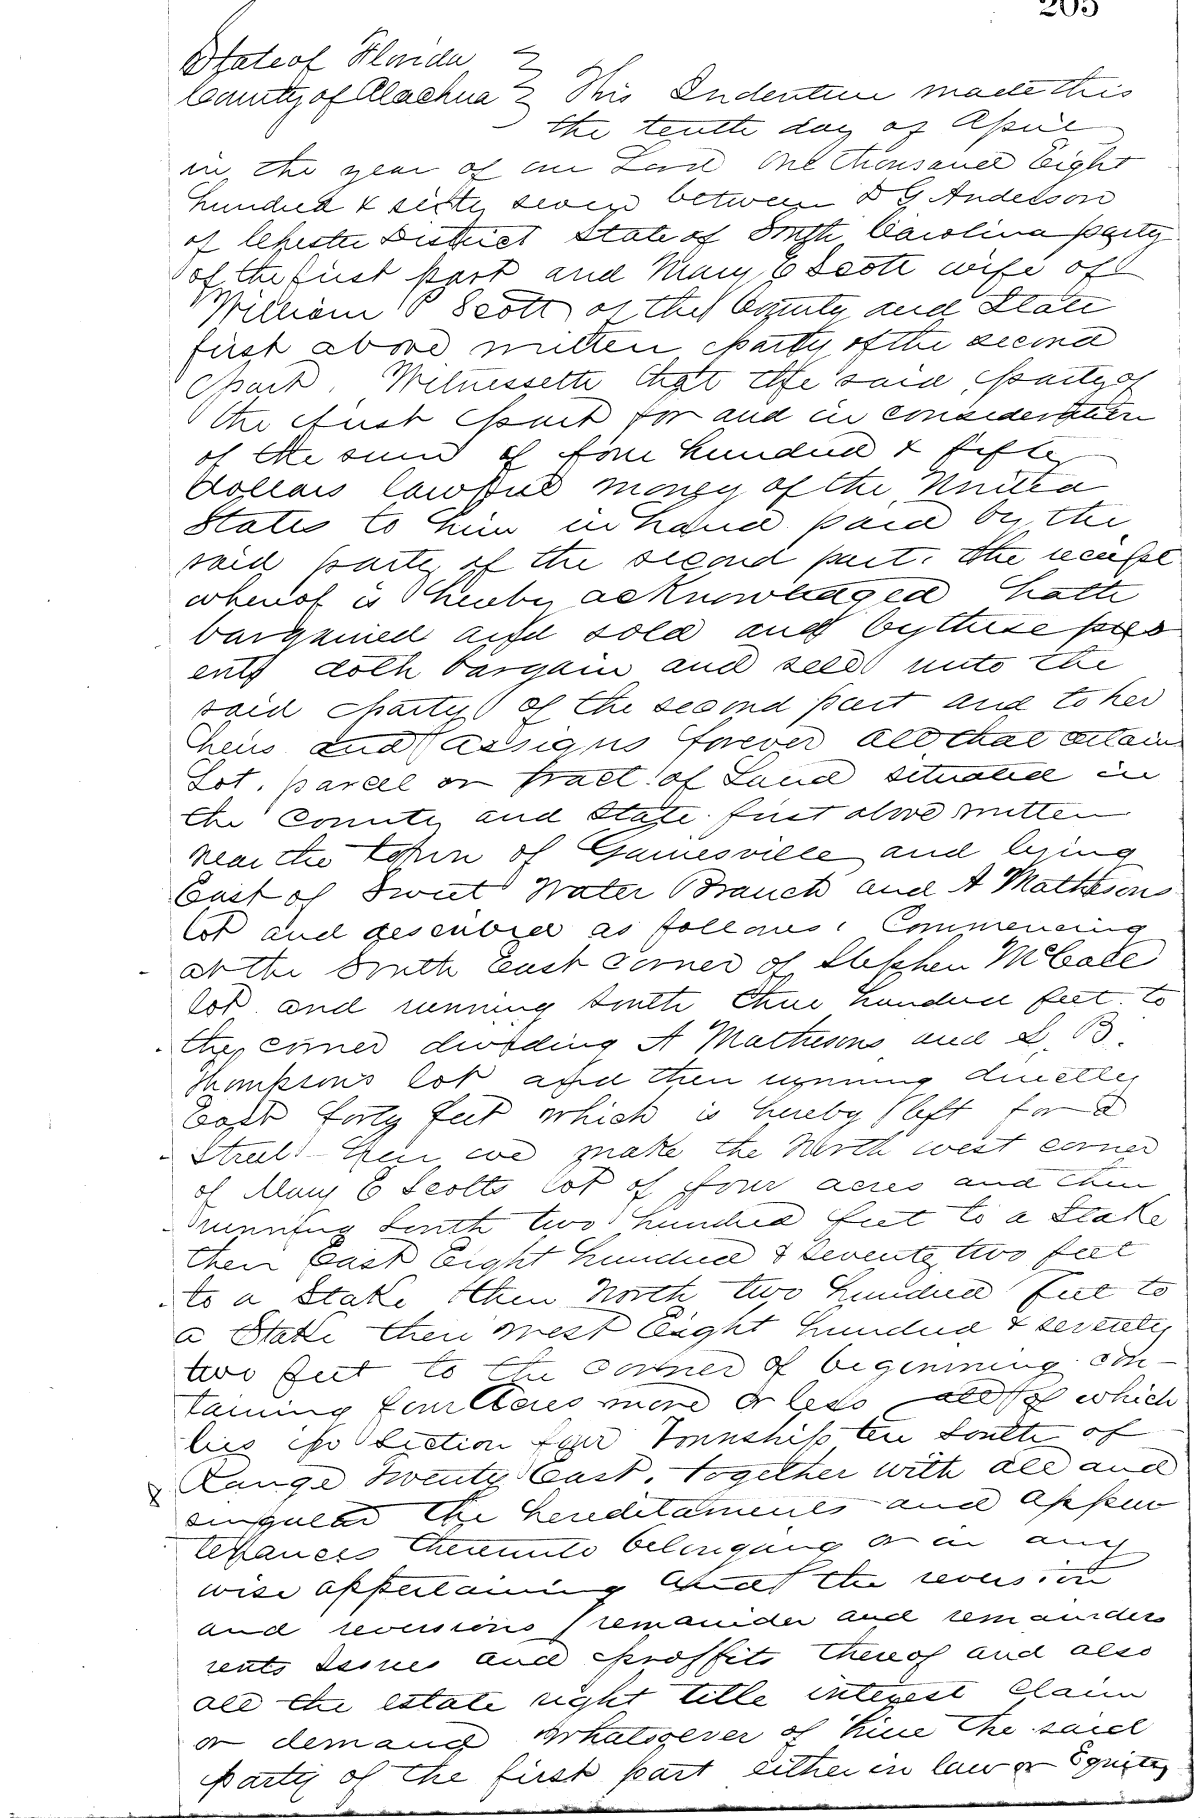 205
State of Florida
County of Alachua } This Indenture made this
the tenth day of April
in the year of our Lord One thousand Eight
hundred & sixty seven between D G Anderson
of Chester District State of South Carolina party
of the first part and Mary E Scott wife of
William P Scott of the County and State
first above written party of the second
part. Witnesseth that the said party of
the first part for and in consideration
of the sum of four hundred & fifty
dollars lawful money of the United
States to him in hand paid by the
said party of the second part. the receipt
whereof is hereby acknowledged hath
bargained and sold and by these pres
ents doth bargain and sell unto the
said party of the second part and to her
heirs and assigns forever all that certain
Lot, parcel or tract of Land situated in
the County and State first above written
near the town of Gainesville and lying
East of Sweet Water Branch and A Mathesons
lot and described as follows, Commencing
at the South East corner of Stephen McCall
lot and running South three hundred feet to
the corner dividing A Mathesons and L. B.
Thompsons lot and then running directly
East forty feet which is hereby left for a
Street then we make the North west corner
of Mary E Scotts lot of four acres and then
running South two hundred feet to a Stake
then East Eight hundred & seventy two feet
to a Stake then North two hundred feet to
a Stake then west Eight hundred & seventy
two feet to the corner of beginning con-
taining four Acres more or less all of which
lies in Section four Township ten South of
Range Twenty East. together with all and
singular the hereditaments and appur
tenances thereunto belonging or in any
wise appertaining and the reversion
and reversions remainder and remainders
rents Issues and proffits thereof and also
all the estate right title interest claim
or demand whatsoever of him the said
party of the first part either in law or Equity